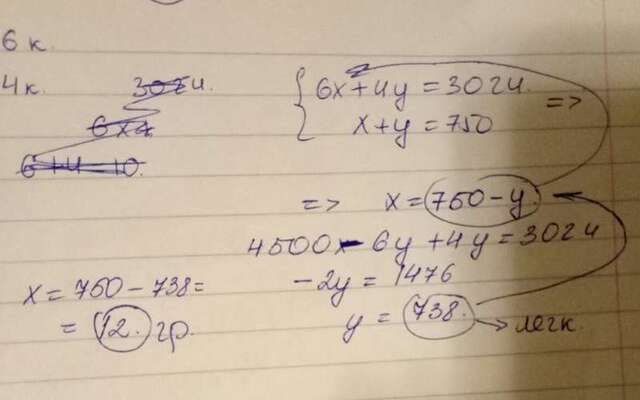 6 к.
4 к.
6x+4y = 3024
x+y = 750
=>
=> x = 750-y
4500 - 6y + 4y = 3024
-2y = 1476
y = 738. → легк.
x = 750 - 738 =
= 12. гр.